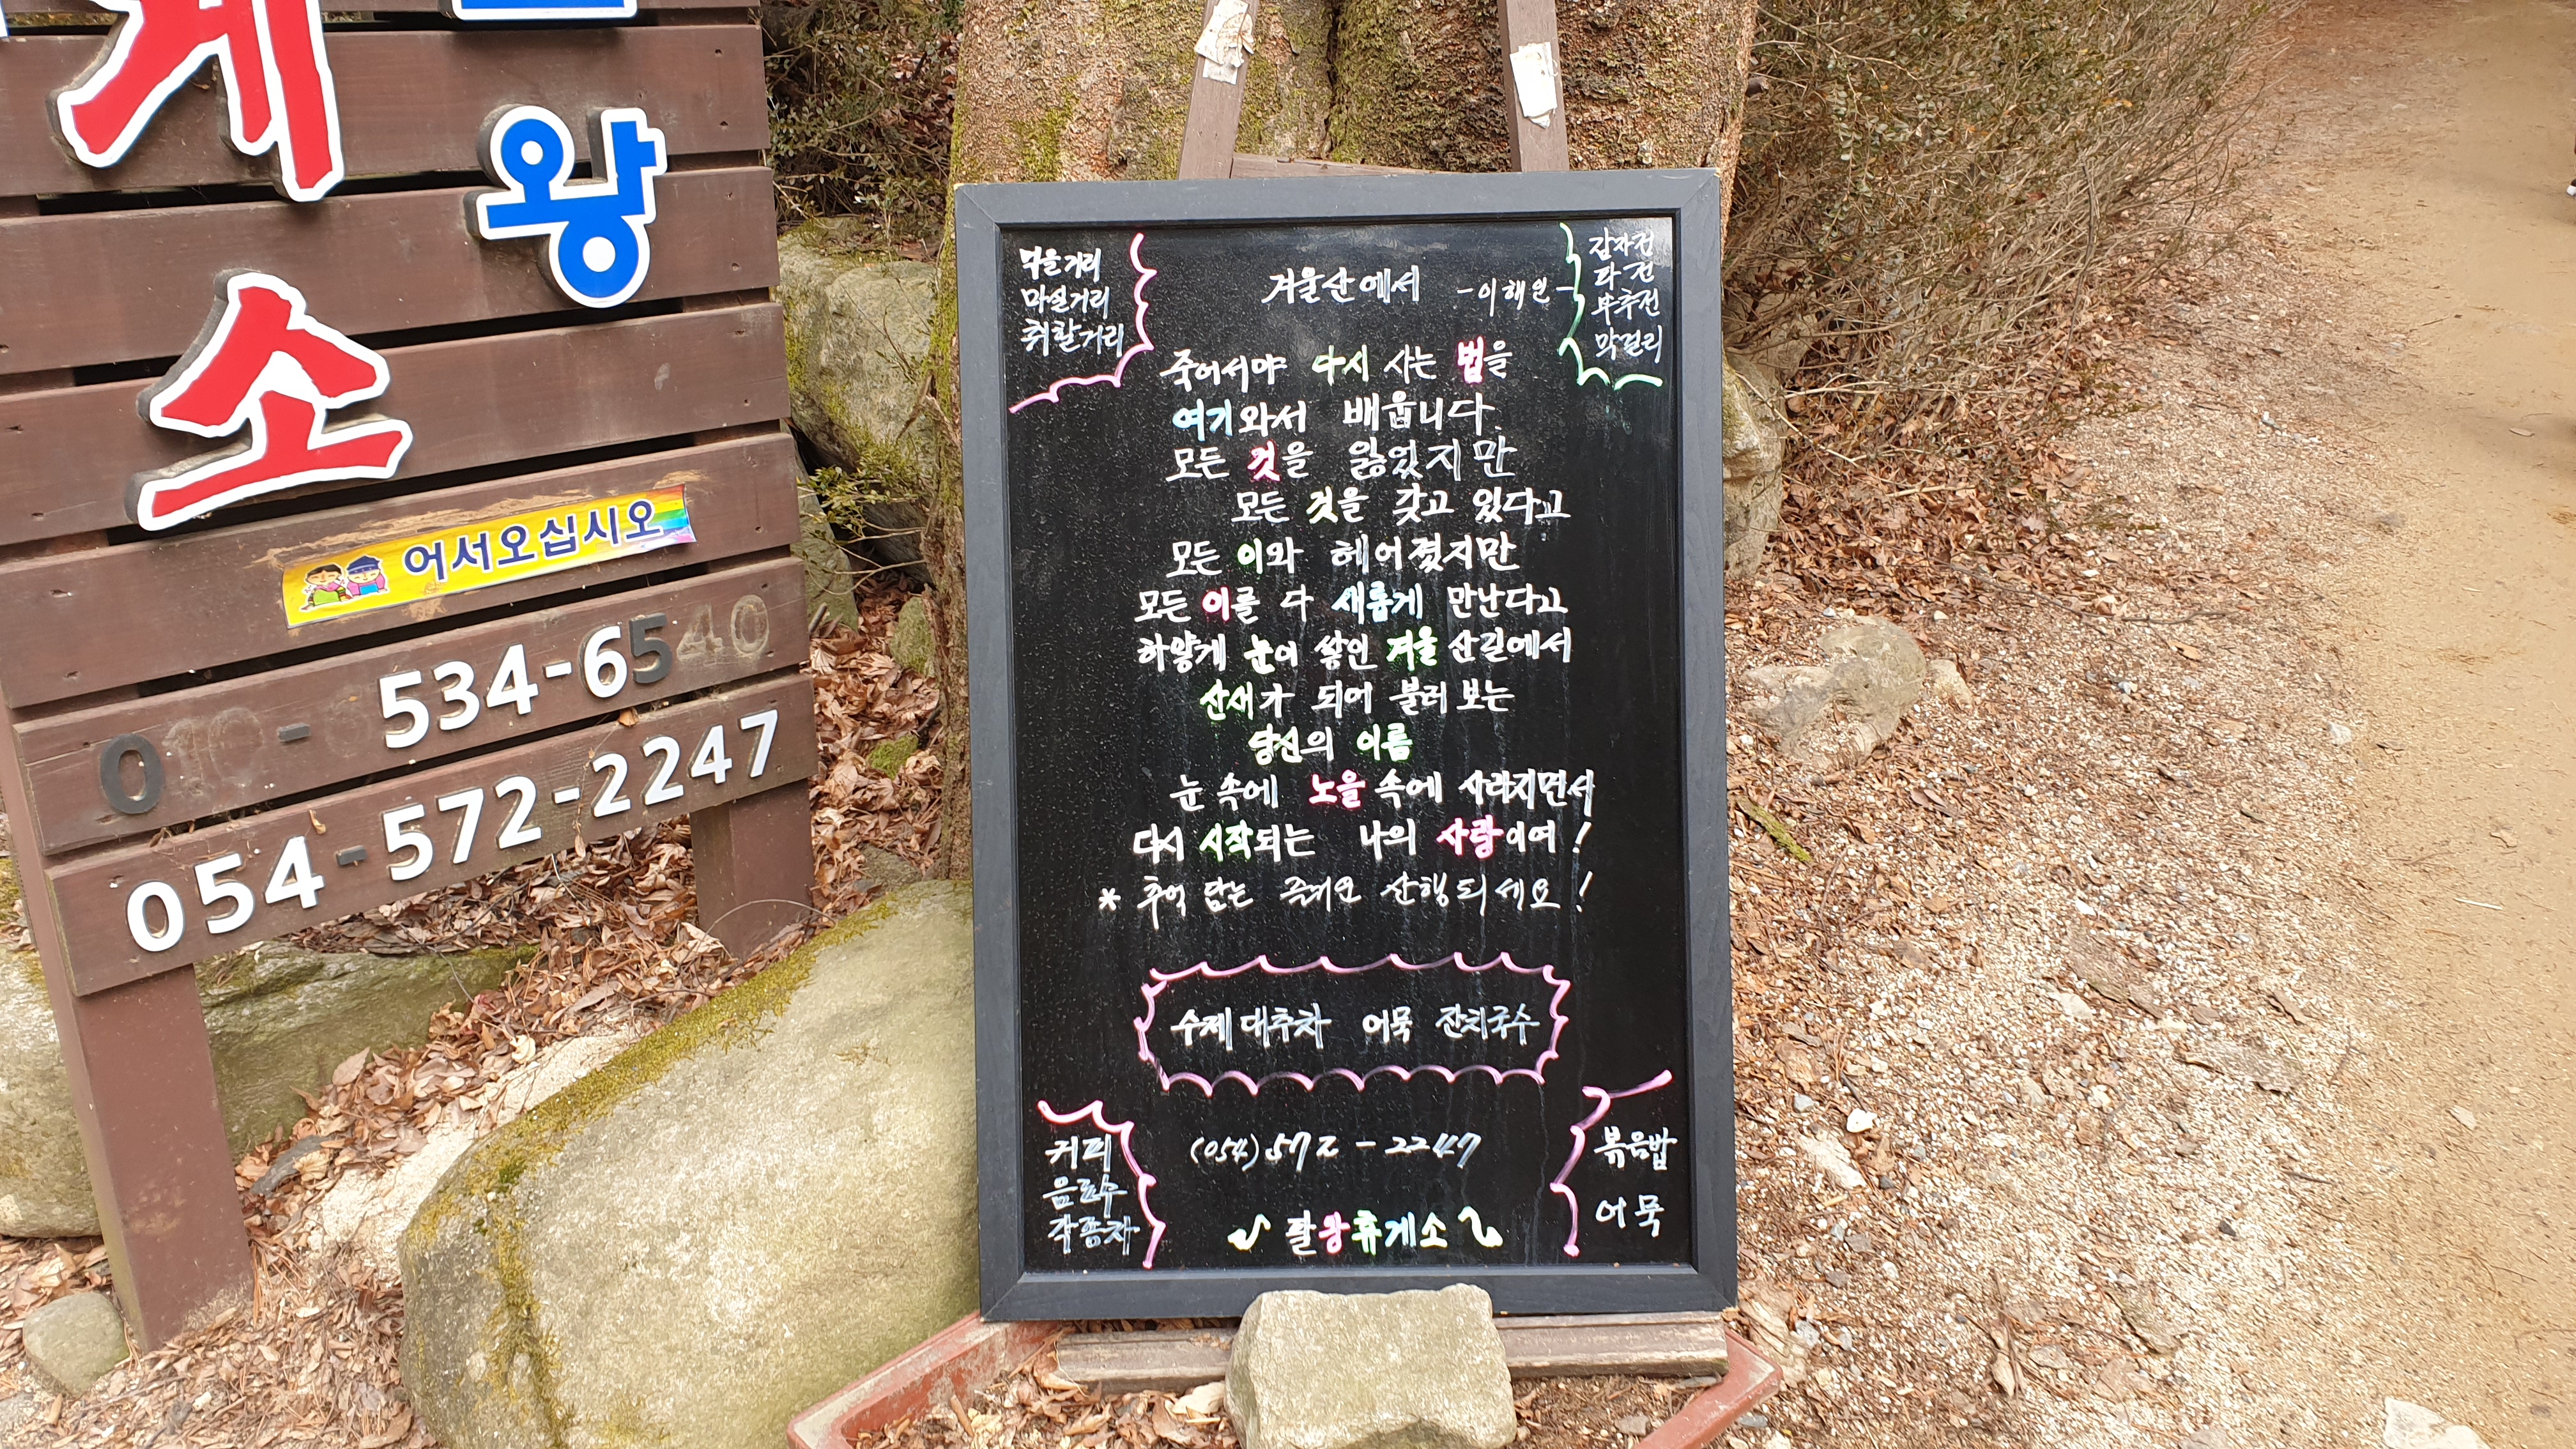 게
왕
소
어서오십시오
534-6540
054-572-2247
먹을거리
마실거리
취할거리
감자전
파전
부추전
막걸리
겨울산에서 -이해인-
죽어서야 다시 사는 법을
여기와서 배웁니다.
모든 것을 잃었지만
모든 것을 갖고 있다고
모든 이와 헤어졌지만
모든 이를 다 새롭게 만난다고
하얗게 눈이 쌓인 겨울 산길에서
산새가 되어 불러 보는
당신의 이름
눈 속에 노을 속에 사라지면서
다시 시작되는 나의 사랑이여!
* 추억 담는 즐거운 산행되세요!
수제대추차 어묵 잔치국수
커피
음료수
각종차
(054) 572-2247
팔왕휴게소
볶음밥
어묵